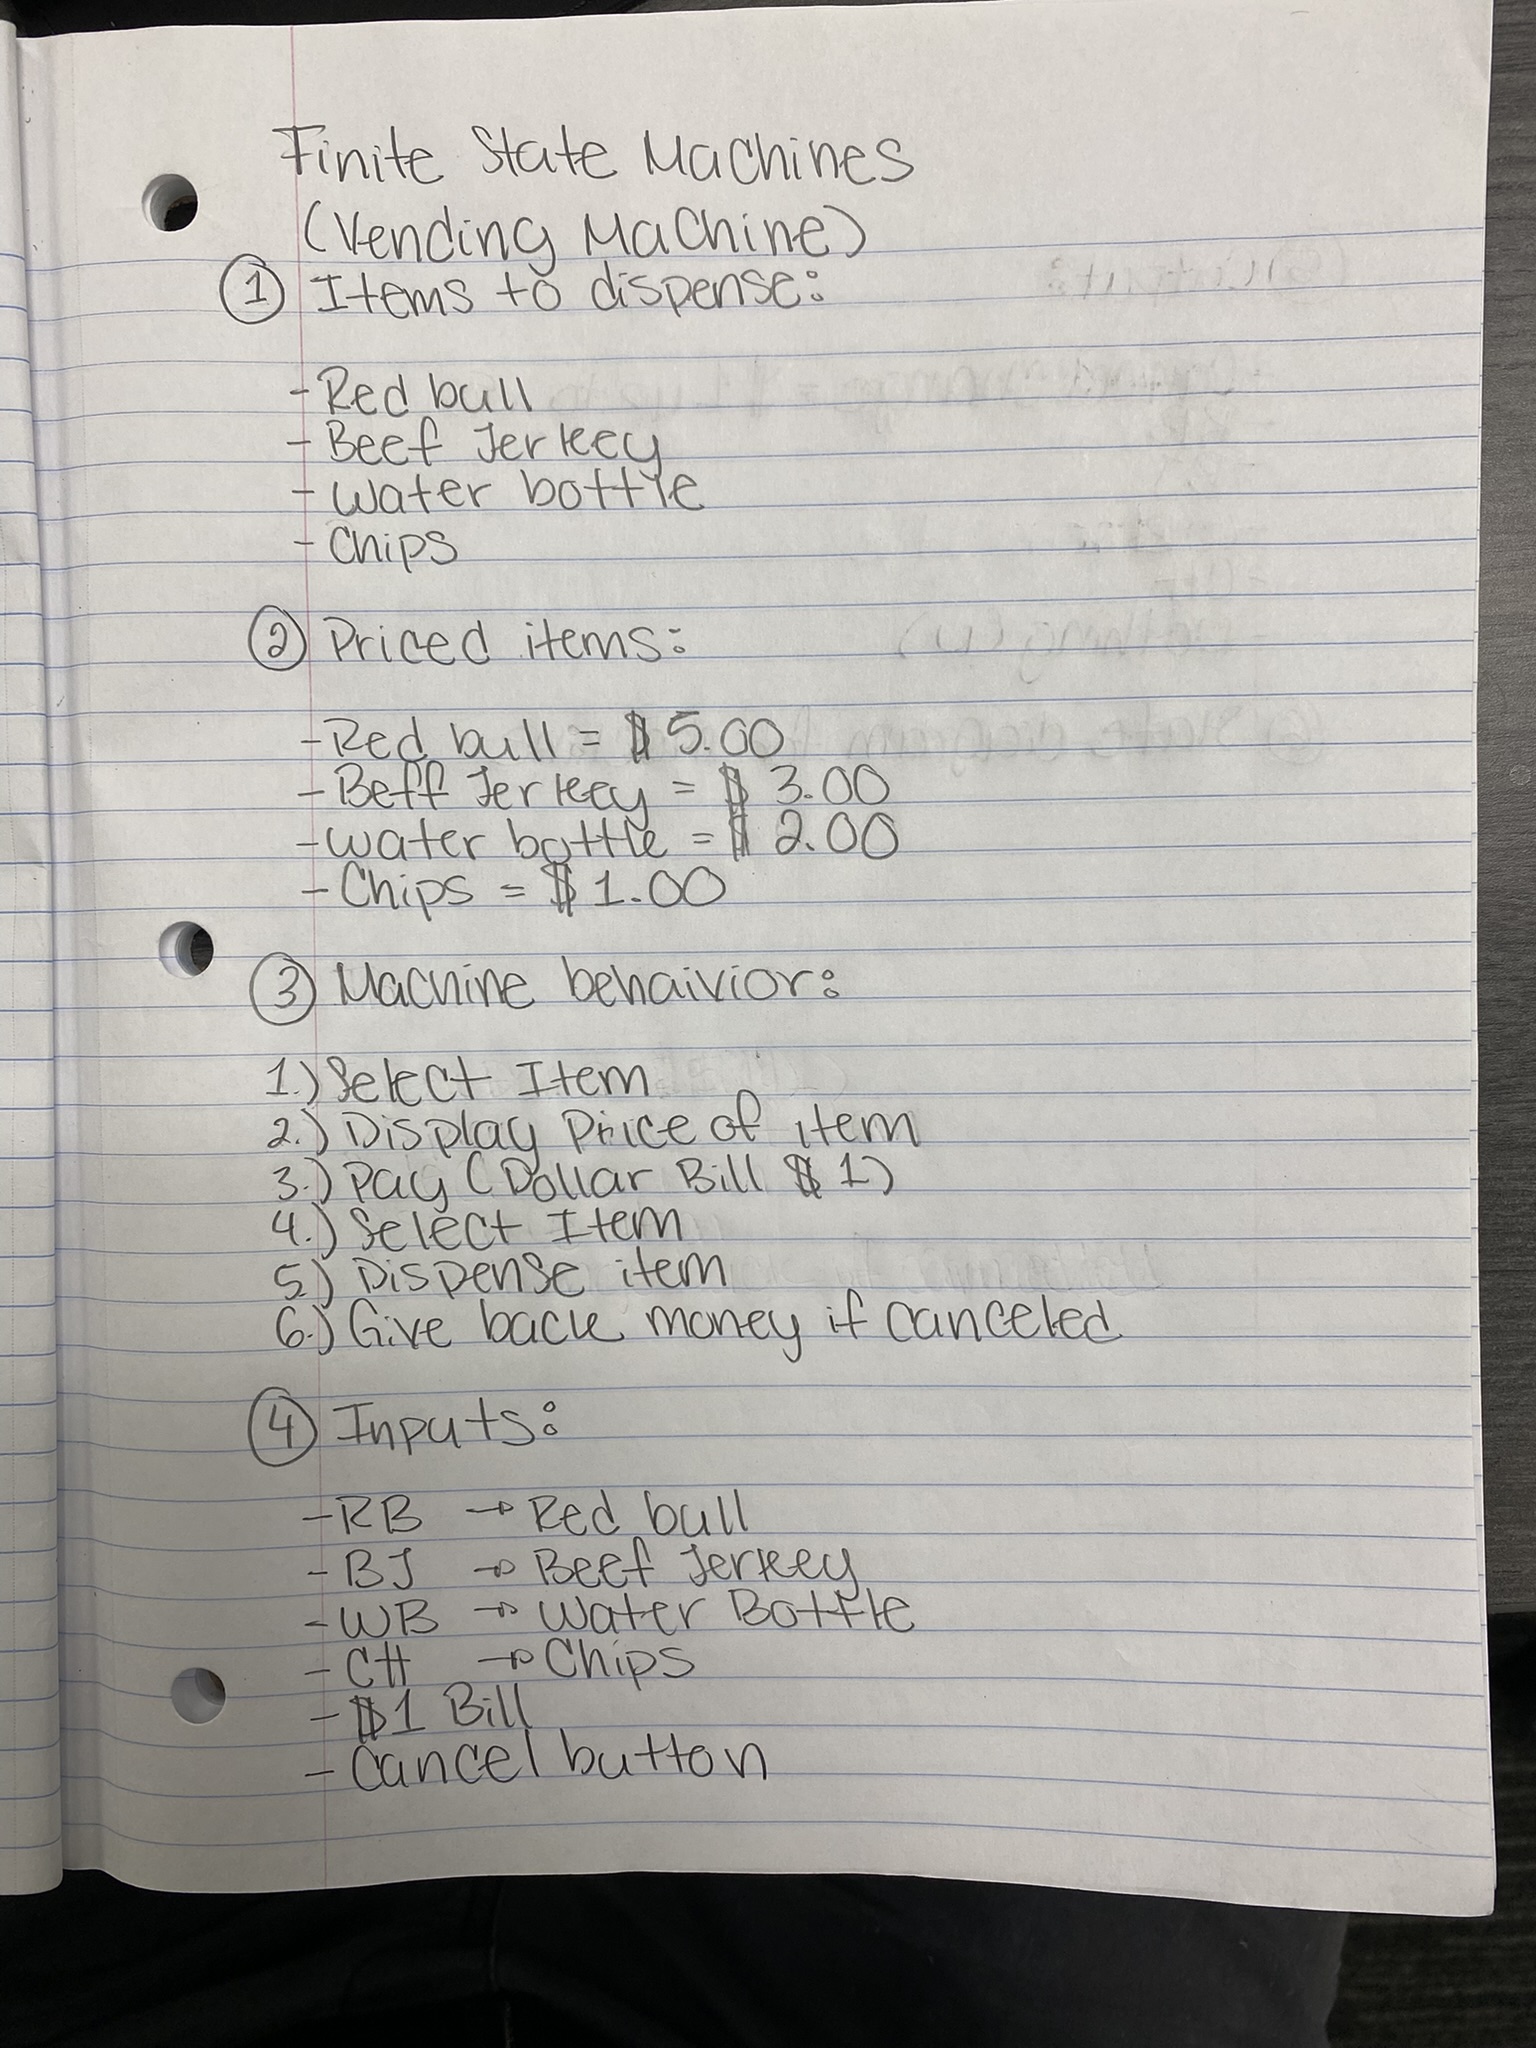 Finite State Machines
(Vending Machine)
① Items to dispense:
- Red bull
- Beef Jerkey
- Water bottle
- Chips
② Priced items:
- Red bull = $5.00
- Beff Jerkey = $ 3.00
- water bottle = $ 2.00
- Chips = $1.00
③ Machine behaivior:
1.) Select Item
2.) Display Price of item
3.) Pay (Dollar Bill $1)
4.) Select Item
5.) Dispense item
6.) Give back money if canceled
④ Inputs:
- RB → Red bull
- BJ → Beef Jerkey
- WB → Water Bottle
- CH → Chips
- $1 Bill
- Cancel button